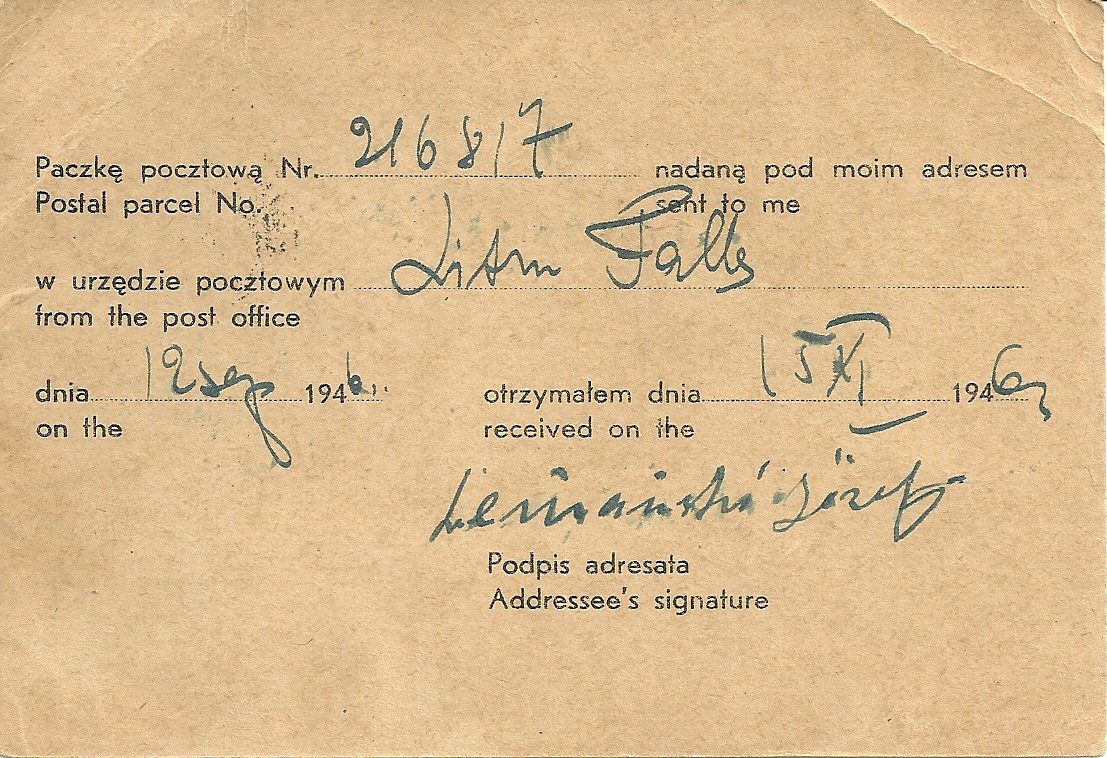 Paczkę pocztową Nr. 216817 nadaną pod moim adresem
Postal parcel No. sent to me
w urzędzie pocztowym Falls
from the post office
dnia 12 sep 1946 otrzymałem dnia 15 XI 1946
on the received on the
Józef
Podpis adresata
Addressee's signature